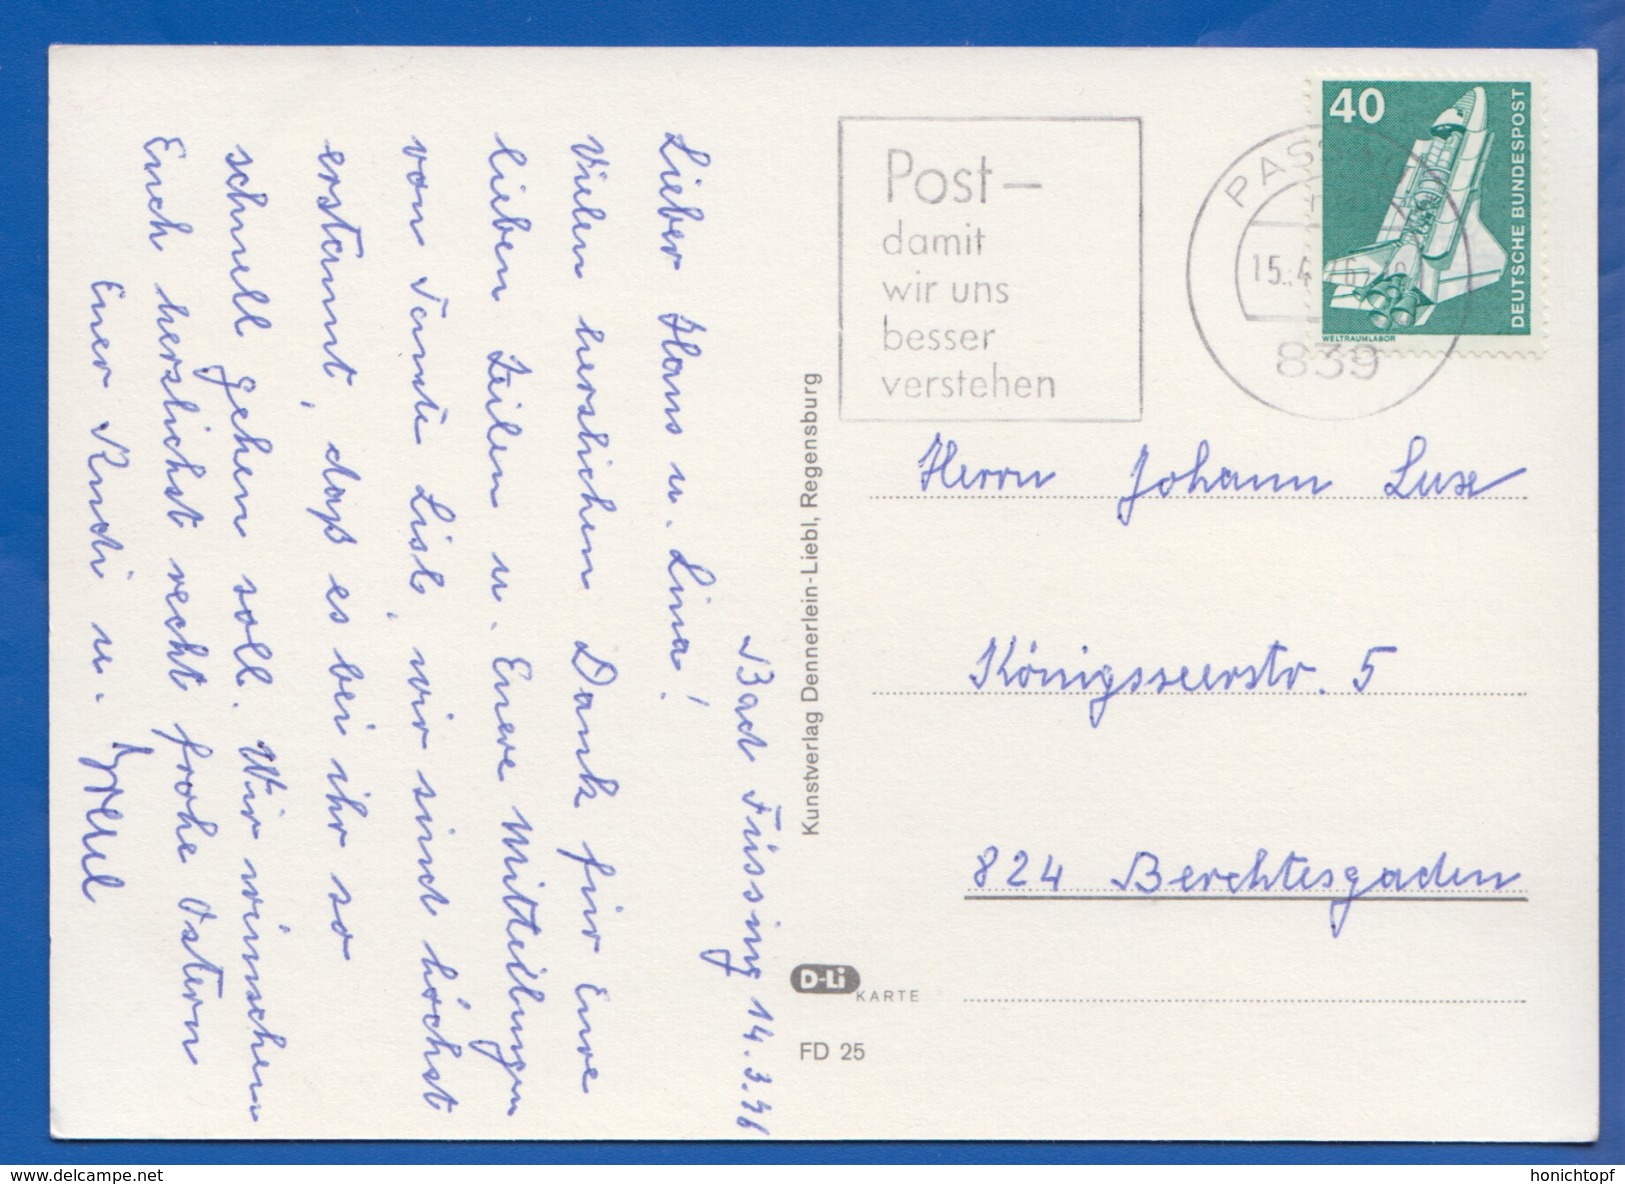 Bad Füssing 14.3.76
Lieber Hans u. Lina!
Vielen herzlichen Dank für Eure
lieben Zeilen u. Eure Mitteilungen
von Tante Lisl, wir sind höchst
erstaunt, daß es bei ihr so
schnell gehen soll. Wir wünschen
Euch herzlichst recht frohe Ostern
Euer Rudi u.
Kunstverlag Dennerlein-Liebl, Regensburg
D-Li
KARTE
FD 25
Post–
damit
wir uns
besser
verstehen
15.4.76
839
40
DEUTSCHE BUNDESPOST
WELTRAUMLABOR
Herrn Johann Luxe
Königsseerstr. 5
824 Berchtesgaden
www.delcampe.net
honichtopf